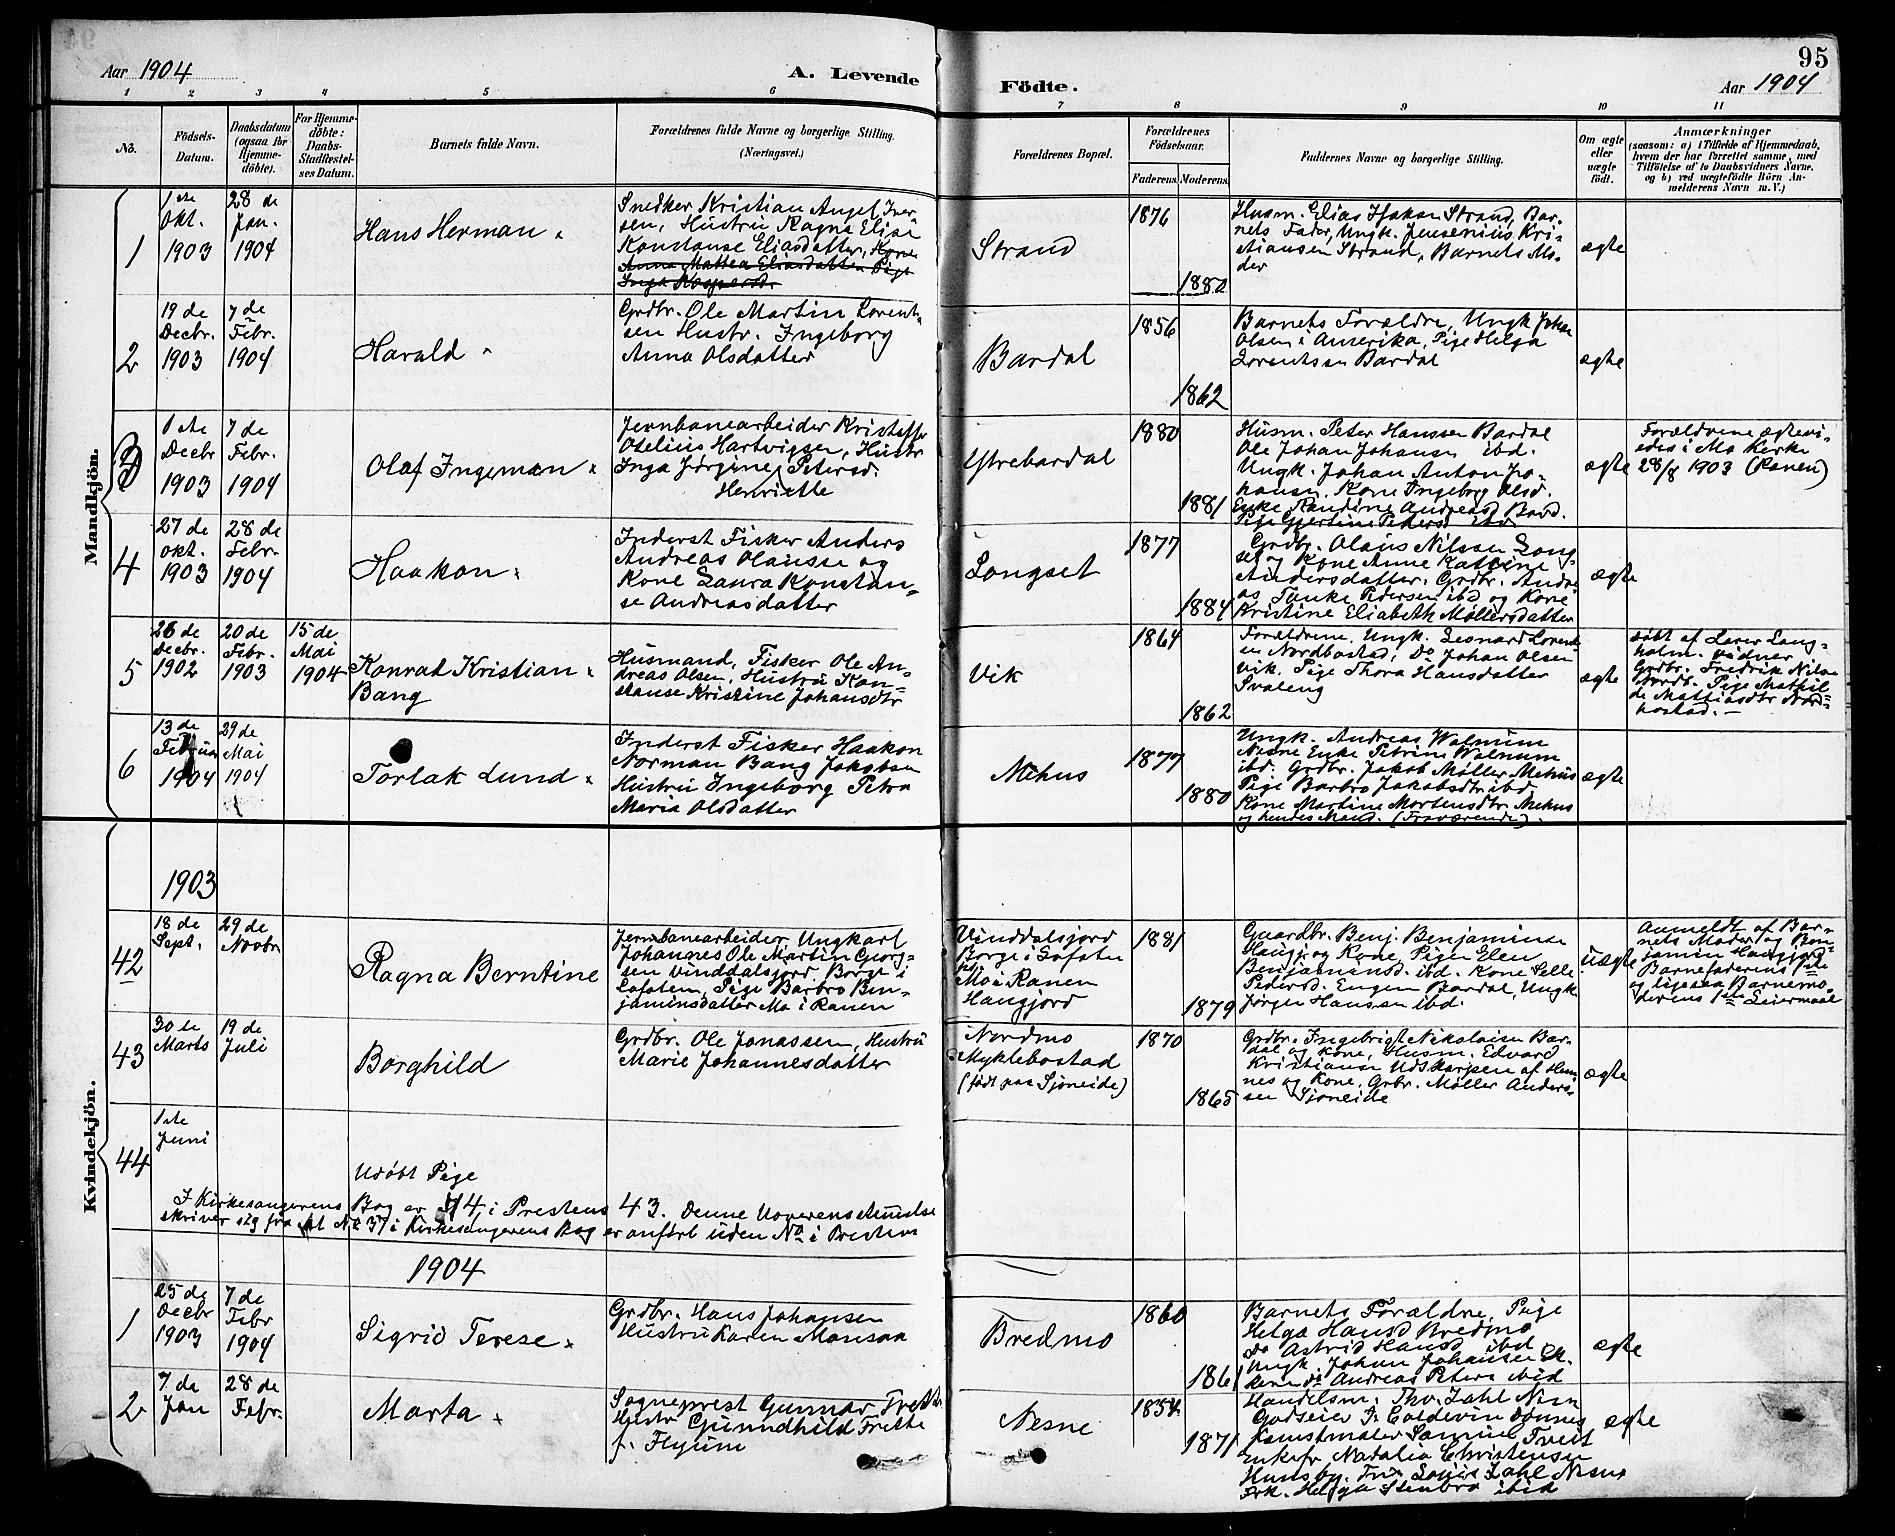 95
Aar 1904
A. Levende
Födte.
Aar 1904
1 2 3 4 5 6 7 8 9 10 11
No.
Födsels-
Datum.
Daabsdatum
(ogsaa for
Hjemme-
döbte).
For Hjemme-
döbte:
Daabs-
Stadfæstel-
ses Datum.
Barnets fulde Navn.
Forældrenes fulde Navne og borgerlige Stilling.
(Næringsvei.)
Forældrenes Bopæl.
Forældrenes
Födselsaar.
Faderens.
Moderens.
Faddernes Navne og borgerlige Stilling.
Om ægte
eller
uægte
födt.
Anmærkninger
(saasom: a) i Tilfælde af Hjemmedaab,
hvem der har forrettet samme, med
Tilföielse af to Daabsvidners Navne,
og b) ved uægtefödte Börn An-
melderens Navn m. V.)
Mandkjön.
1
1ste
Okt.
1903
28 de
Jan.
1904
Hans Herman
Snedker Kristian Angel Iver-
sen, Hustru Ragna Elise
Konstanse Eliasdatter,
Anna Mattea Eliasdatter Pige
Inga
Strand
1876
1880
Husm. Elias Hakon Strand, Bar-
nets Fader, Ungk. Jensenius Kri-
stiansen Strand, Barnets Mo-
der
ægte
2
19 de
Decbr.
1903
7 de
Febr.
1904
Harald
Grdbr. Ole Martin Lorent-
sen Hustr. Ingeborg
Anna Olsdatter
Bardal
1856
1862
Barnets Forældre, Ungk Johan
Olsen i Amerika, Pige Helga
Lorentssen Bardal
ægte
3
1ste
Decbr
1903
7 de
Febr.
1904
Olaf Ingeman
Jernbanearbeider Kristoffer
Otelius Hartvigsen, Hustr
Inga Jörgine Petersd.
Henriette
Ytrebardal
1880
1881
Husm. Peter Hanssen Bardal
Ole Johan Johansen ibd.
Ungk. Johan Anton Jo-
hansen. Kone Ingebrg Olsd.
Enke Randine Andreasd Bard.
Pige Gjertine Petersd. Ibd
ægte
Forældrene ægtevi-
edes i Mo Kirke
28/8 1903 (Ranen)
4
27 de
Okt.
1903
28 de
Febr.
1904
Haakon
Inderst Fisker Anders
Andreas Olaussen og
Kone Laura Konstan-
se Andreasdatter
Longset
1877
1884
Grdbr. Olaus Nilssen Long-
set og Kone Anne Katrine
Andersdatter. Grdbr. Andre-
as Tanke Pedersen ibd og Kone
Kristine Eliabeth Møllersdatter
ægte
5
26 de
Decbr.
1902
20 de
Febr.
1903
15 de
Mai
1904
Konrad Kristian
Bang
Husmand, Fisker Ole An-
dreas Olsen, Hustru Kon-
stanse Kristine Johansdtr
Vik
1864
1862
Forældrene. Ungk. Leonard Lorents-
en Nordbostad, Do Johan Olsen
Vik. Pige Thora Hansdatter
Svaleng
ægte
Døbt af Lærer Lang-
holm. Vidner
Grdbr. Fredrik Nilsen
Nordb. Pige Mathil-
de Mattiasdtr Nord-
bostad.
6
13 de
Februar
1904
29 de
Mai
1904
Torlak Lund
Inderst Fisker Haakon
Norman Bang Jakobsen
Hustru Ingeborg Petra
Maria Olsdatter
Mehus
1877
1880
Ungk. Andreas Walnum
Nesne Enke Petrine Walnum
ibd. Grdbr. Jakob Møller Mehus
Pige Barbro Jakobsdtr ibd
Kone Martine Mortensdtr Mehus
og hendes Mand. (Fraværende).
ægte
Kvindekjön.
1903
42
18 de
Sept.
29 de
Novbr
Ragna Berntine
Jernbanearbeider Ungkarl
Johannes Ole Martin Georg-
sen Vinddalsjord Borge i
Lofoten, Pige Barbro Ben-
jaminsdatter Mo i Ranen
Vinddalsjord
Borge i Lofoten
Mo i Ranen
Haugjord
1881
1879
Gaardbr. Benj. Benjaminse
Haugj og Kone, Pigen Elen
Benjaminsd. ibd. Kone Pelle
Pedersd. Engen Bardal, Ungk
Jørgen Hansen ibd.
uægte
Anmeldt af Bar-
nets Moder og Ben-
jamin Haugjord
Barnefaderens 1ste
og ligesaa Barnemo-
derens 1ste Leiermaal
43
30 te
Marts
19 de
Juli
Borghild
Grdbr. Ole Jonassen, Hustru
Marie Johannesdatter
Nordmo
Myklebostad
(født paa Sjoneide)
1870
1865
Grdbr. Ingebrigt Nikolaisen Bar-
dal og Kone, Husm. Edvard
Kristiansen Udskarpen af Hem-
nes og Kone, Grbr. Møller Anders-
sen Sjoneide
ægte
44
1ste
Juni
Udøbt Pige
I Kirkesangerens Bog er 44 i Prestens 43. Denne Uoverensstemmelse
skriver sig fra at No 37 i Kirkesangerens Bog er anført uden No i Prestens
1904
1
25 de
Decbr
1903
7 de
Febr
1904
Sigrid Terese
Grdbr. Hans Johansen
Hustru Karen Monsdtr
Bredmo
1860
1861
Barnets Forældre, Pige
Helga Hansd Bredmo
Do Astrid Hansd ibd
Ungk. Johan Johansen
Andreas Peters ibid
ægte
2
7 de
Jan
28 de
Febr.
Marta
Sogneprest Gunnar Trette
Hustr Gunndhild Trette
f. Flyum
Nesne
1854
1871
Handelsm. Thv. Zahl Nesn
Godseier I. Coldevin Dønnes
Kunstmaler Samuel Tveit
Enkefr Natalia Christensen
Husby. Fru Louise Zahl Nesne
Frk. Helga Stenbro ibid
ægte